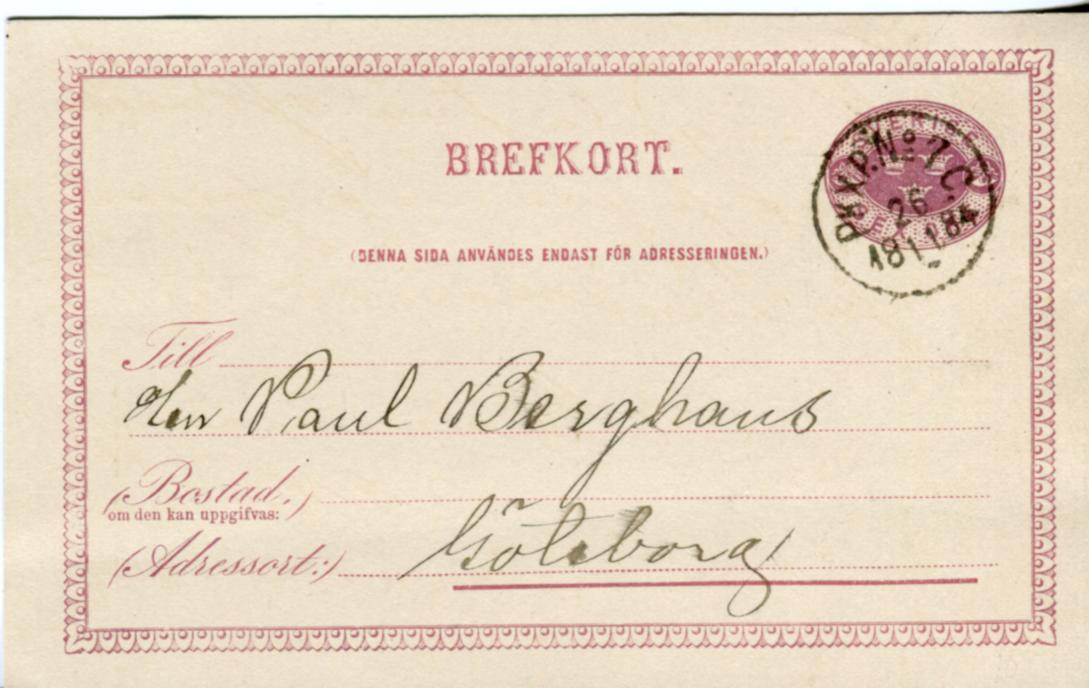 BREFKORT.
SVERIGE
PKXP. No 1 C.
26
1 1884
(DENNA SIDA ANVÄNDES ENDAST FÖR ADRESSERINGEN.)
Till
Herr Paul Berghaus
(Bostad,)
om den kan uppgifvas:
(Adressort:)
Göteborg